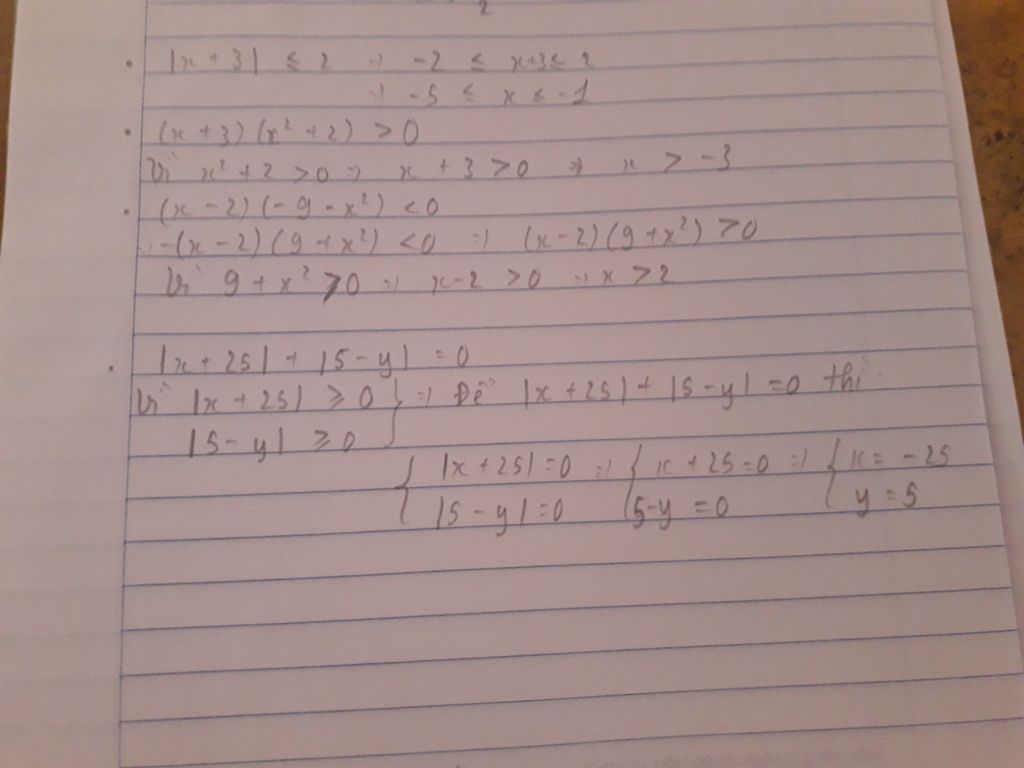 2
• |x + 3| ≤ 2 => -2 ≤ x+3 ≤ 2
=> -5 ≤ x ≤ -1
• (x + 3) (x² + 2) > 0
Vì x² + 2 > 0 => x + 3 > 0 => x > -3
• (x - 2) (- 9 - x²) < 0
=> -(x - 2) (9 + x²) < 0 => (x - 2) (9 + x²) > 0
Vì 9 + x² > 0 => x - 2 > 0 => x > 2
• |x + 25| + |5 - y| = 0
Vì |x + 25| ≥ 0 } => Để |x + 25| + |5 - y| = 0 thì
|5 - y| ≥ 0
{ |x + 25| = 0 => { x + 25 = 0 => { x = - 25
|5 - y| = 0 5 - y = 0 y = 5